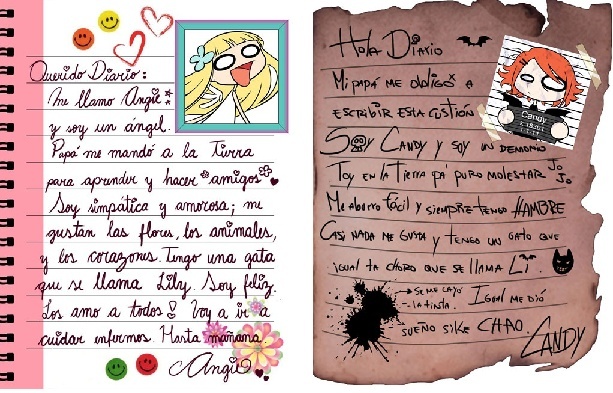 Querido Diario:
Me llamo Angie
y soy un ángel.
Papá me mandó a la tierra
para aprender y hacer amigos
Soy simpática y amorosa; me
gustan las flores, los animales,
y los corazones. Tengo una gata
que se llama Lily. Soy feliz.
Los amo a todos! Voy a ir a
cuidar enfermos. Hasta mañana
Angie
Hola Diario
Mi papá me obligó a
escribir esta custión
Soy Candy y soy un demonio
Toy en la tierra pa puro molestar Jo
Jo
Me aburro fácil y siempre tengo HAMBRE
Casi nada me gusta y tengo un gato que
igual ta choro que se llama Li.
Se me cayó
la tinta. Igual me dió
sueño sike CHAO.
CANDY
Candy